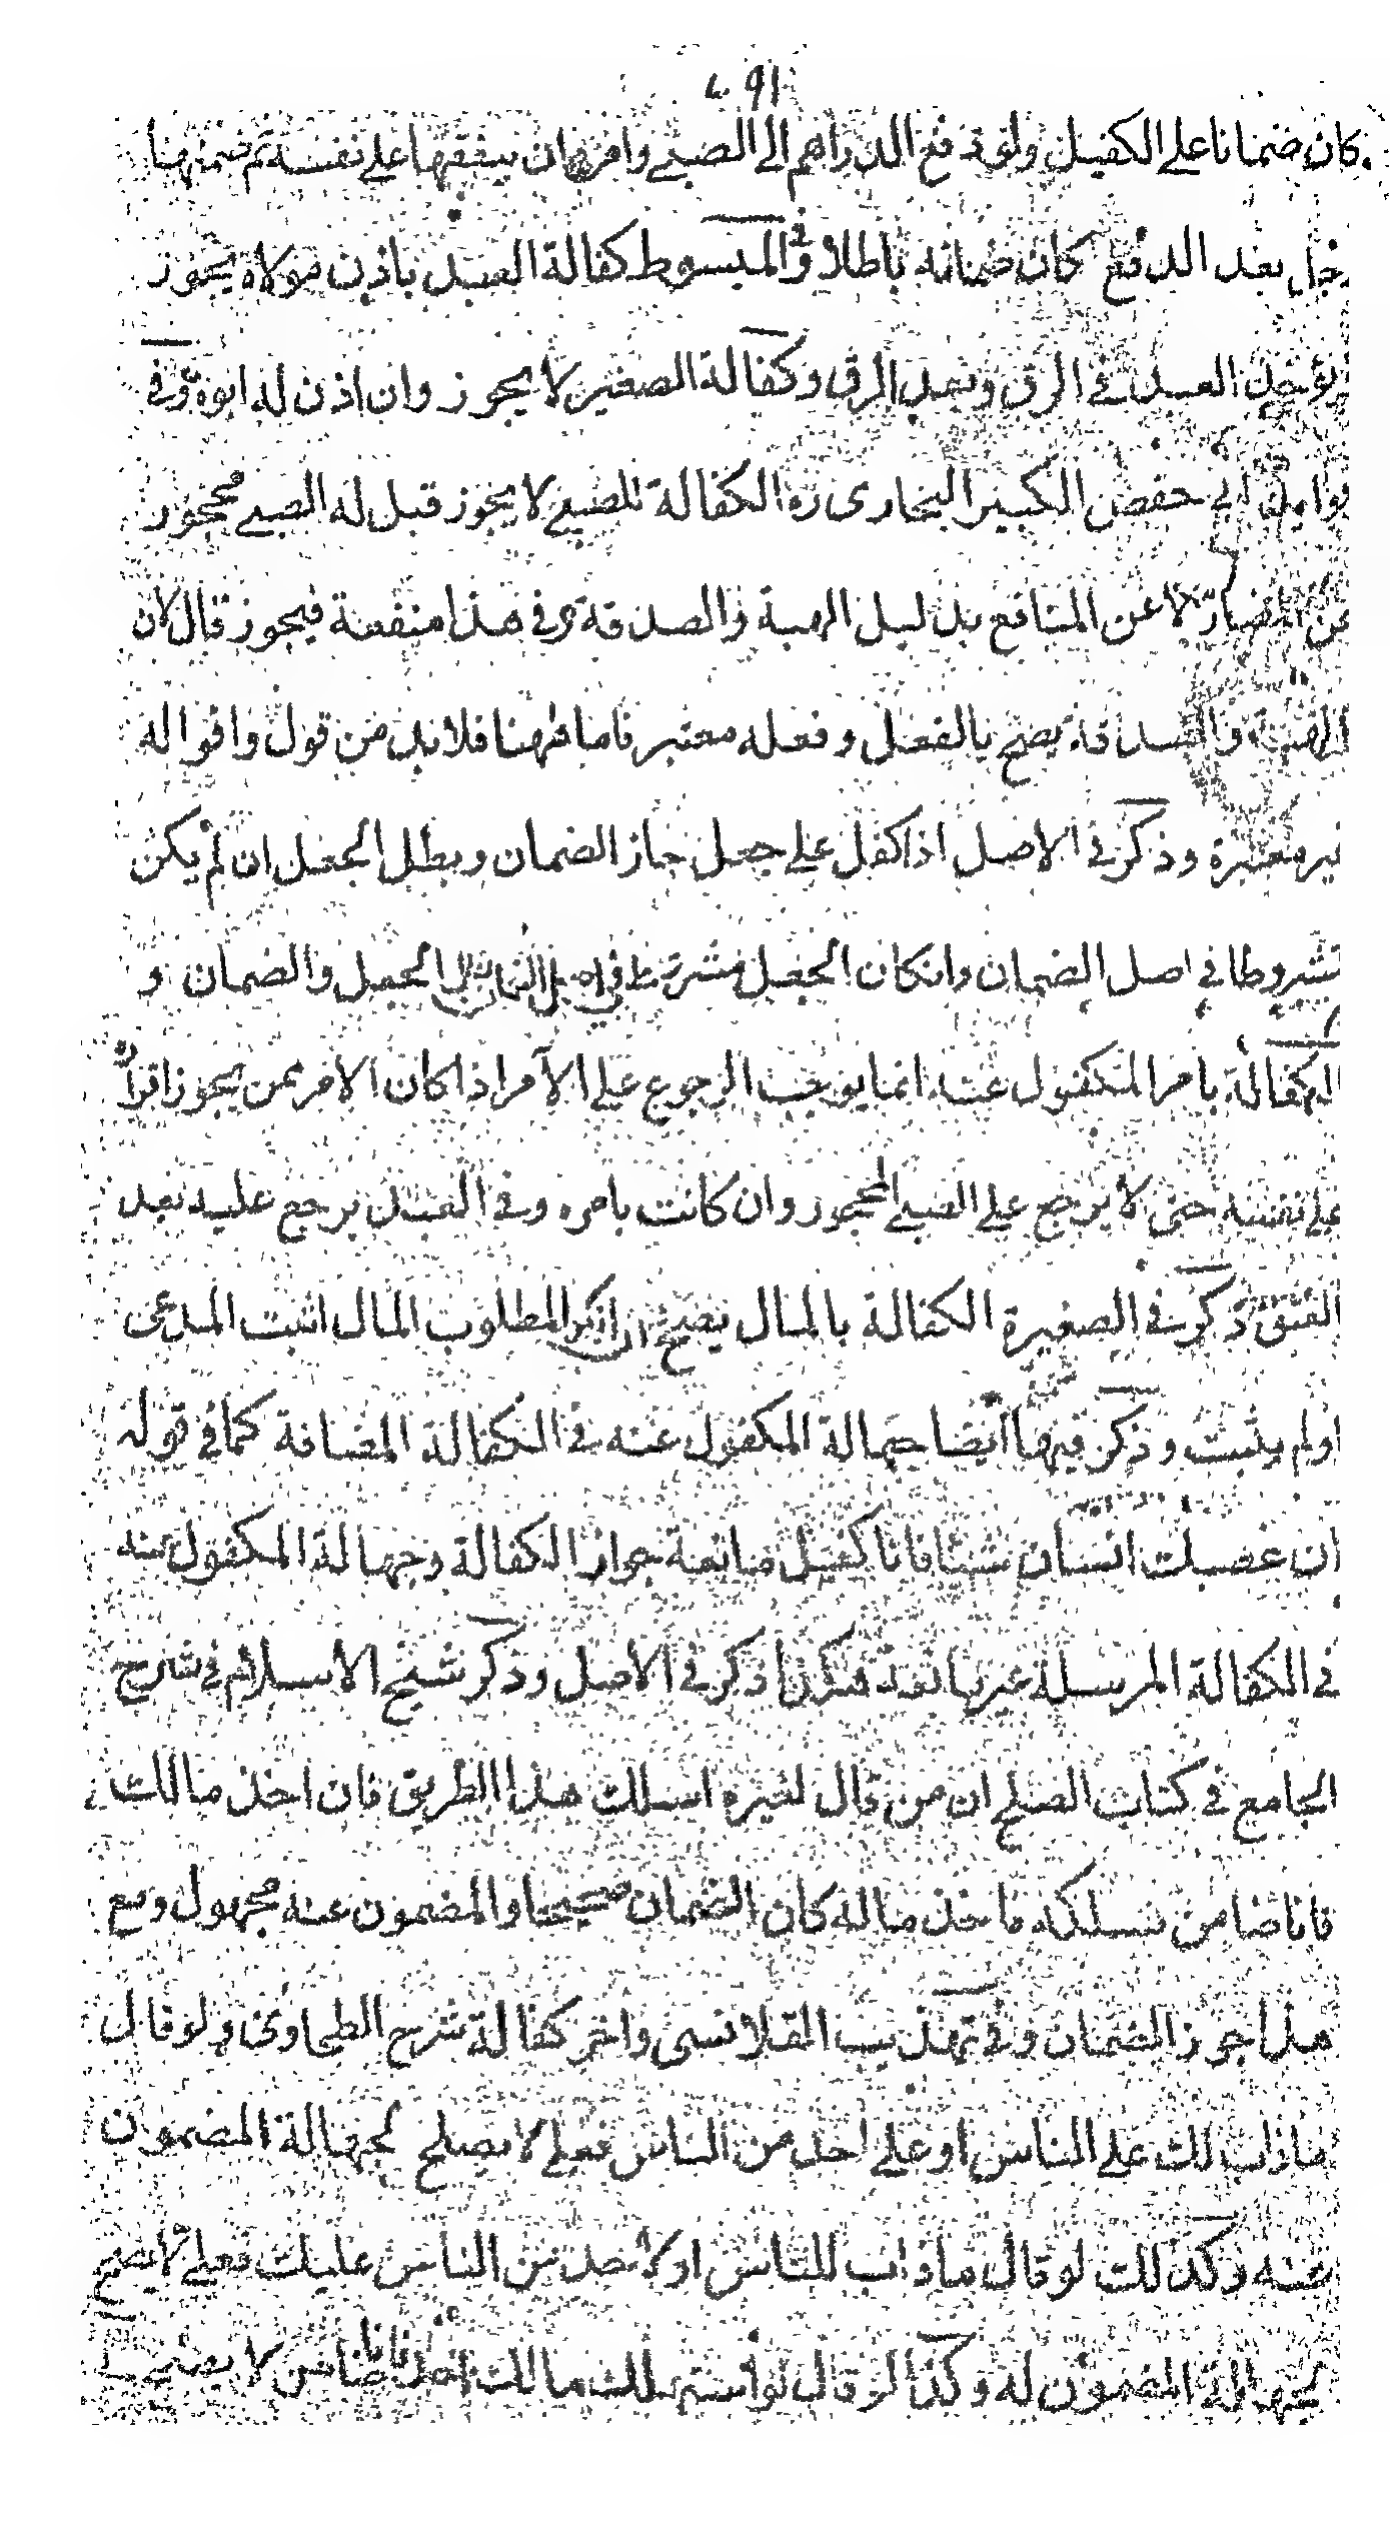 ٦٩١
كان ضمانا على الكفيل ولو دفع الدراهم الى الصبى وامره ان ينفقها على نفسه ثم ضمنها
رجل بعد الدفع كان ضمانه باطلا وفى المبسوط كفالة العبد باذن مولاه يجوز
العبد فى الرق وبعد الرق وكفالة الصغير لا يجوز وان اذن له ابوه وفى
ابى حفص الكبير البخارى ره الكفالة للصبى لا يجوز قبل له الصبى محجور
عن المضار لا عن المنافع بدليل الهبة والصدقة وفى هذا منفعة فيجوز قال لان
الهبة والصدقة يصح بالفعل وفعله معتبر فاما ههنا فلا بد من قول واقواله
غير معتبرة وذكر فى الاصل اذا كفل على جعل جاز الضمان وبطل الجعل ان لم يكن
مشروطا فى اصل الضمان وانكان الجعل مشروطا فى اصل الجعل والضمان و
الكفالة بامر المكفول عنه انما يوجب الرجوع على الآمر اذا كان الامر ممن يجوز اقراره
على نفسه حتى لا يرجع على الصبى المحجور وان كانت بامره وفى العبد يرجع عليه بعد
العتق ذكر فى الصغيرة الكفالة بالمال يصح ان انكر المطلوب المال اثبت المدعى
اولم يثبت وذكر فيها ايضا جهالة المكفول عنه فى الكفالة المضافة كما فى قوله
ان غصبك انسان شيئا فانا كفيل مانعة جواز الكفالة وجهالة المكفول عنه
فى الكفالة المرسلة غير مانعة هكذا ذكر فى الاصل وذكر شيخ الاسلام فى شرح
الجامع فى كتاب الصلح ان من قال لغيره اسلك هذا الطريق فان اخذ مالك
فانا ضامن فسلكه فاخذ ماله كان الضمان صحيحا والمضمون عنه مجهول ومع
هذا جوز الضمان وفى تهذيب القلانسى واخر كفالة شرح الطحاوى ولو قال
ماذاب لك على الناس او على احد من الناس فعلى لا يصلح لجهالة المضمون
عنه وكذلك لو قال ماذاب للناس او لاحد من الناس عليك فعلى لا يصح
لجهالة المضمون له وكذا لو قال لو استهلك مالك احد فانا ضامن لا يصح